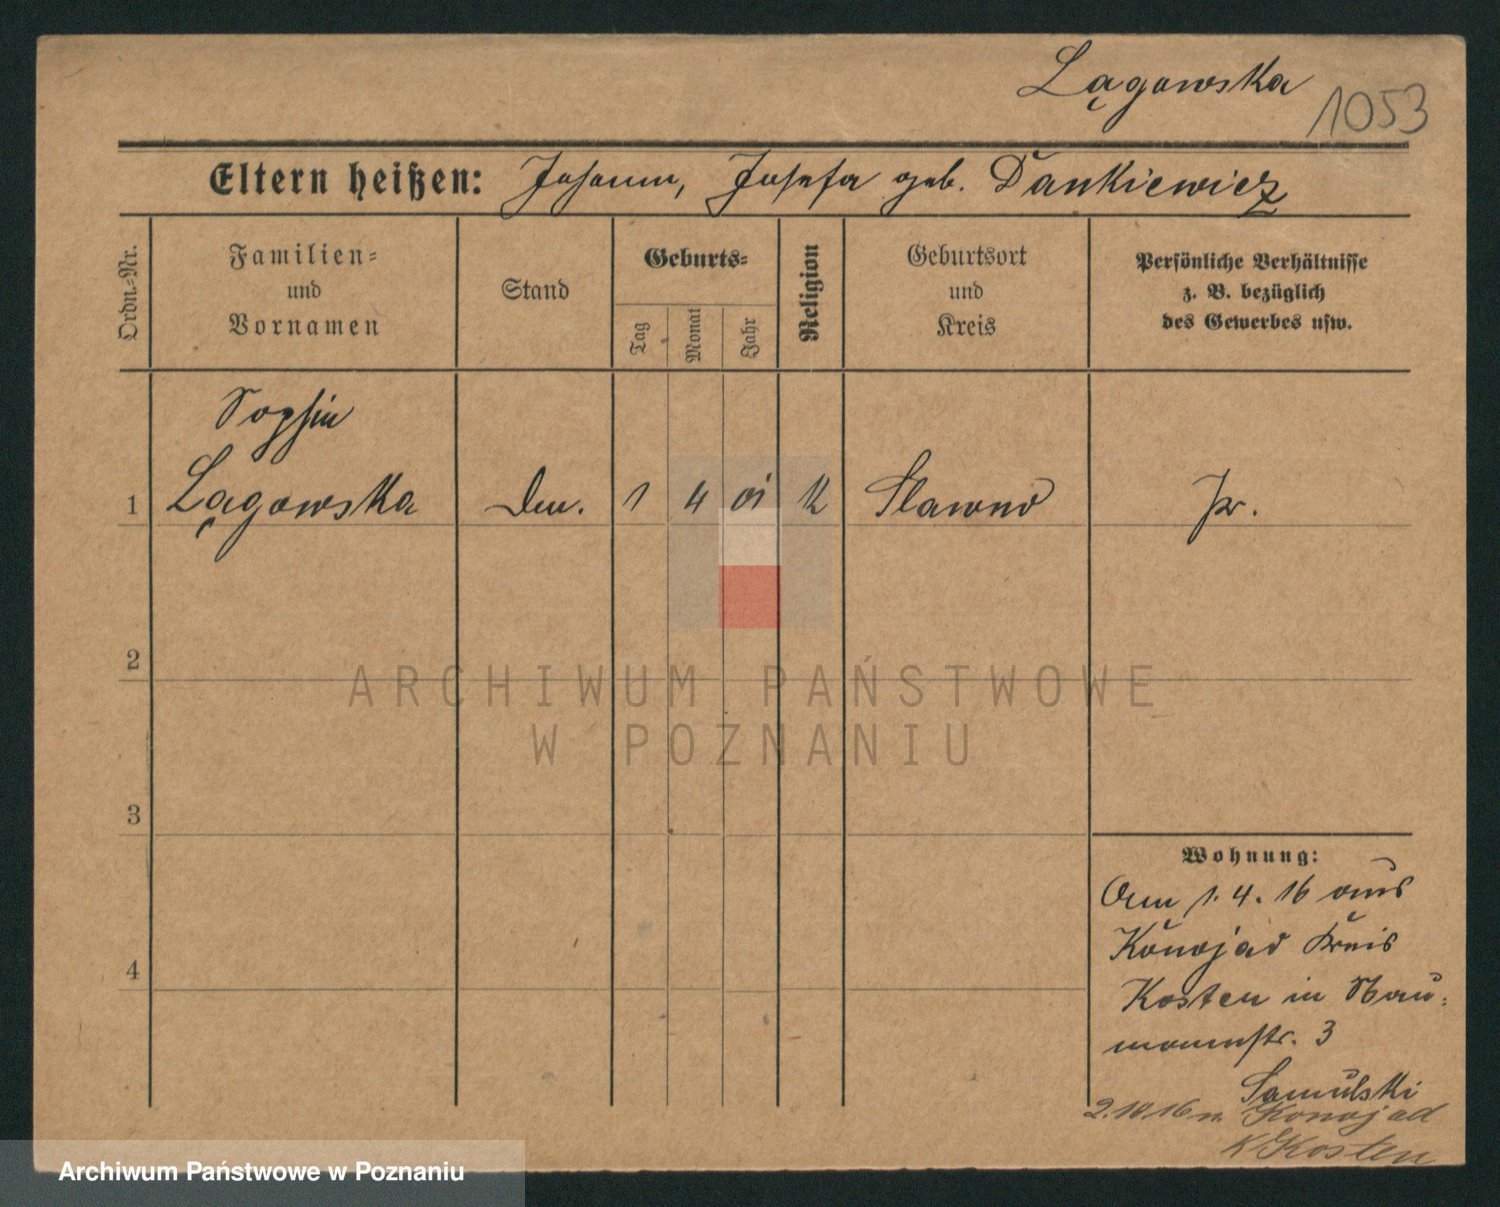 Lągowska
1053
Eltern heißen: Johann, Josefa geb. Dankiewicz
Ordn.-Nr.
Familien-
und
Vornamen
Stand
Geburts-
Tag
Monat
Jahr
Religion
Geburtsort
und
Kreis
Persönliche Verhältnisse
z. B. bezüglich
des Gewerbes usw.
Sophie
1 Lągowska 1 4 01 K Slawno
2
ARCHIWUM PAŃSTWOWE
W POZNANIU
3
Wohnung:
Am 1. 4. 16 aus
Konojad Kreis
4
Kosten in Nau-
mannstr. 3
Samulski
2.10.16 n. Konojad
K Kosten
Archiwum Państwowe w Poznaniu